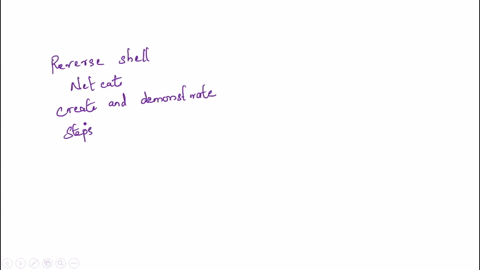 Reverse shell
Netcat
create and demonstrate
steps